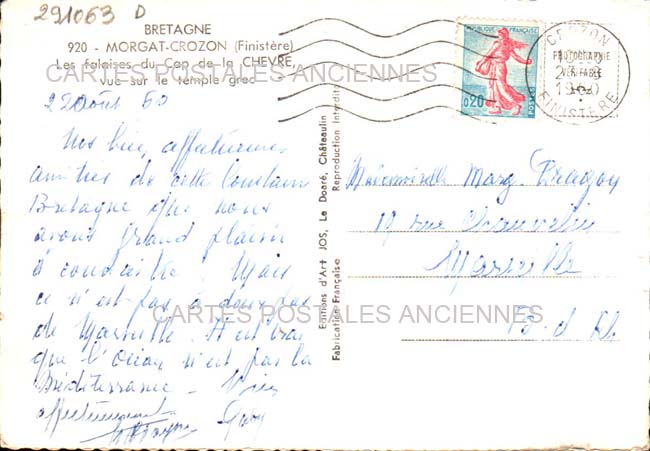 291063 D
BRETAGNE
920 - MORGAT-CROZON (Finistère)
Les falaises du Cap de la CHEVRE,
vue sur le temple grec
CARTES POSTALES ANCIENNES
22 Août 60
Nos bien affectueuses
amitiés de cette lointaine
Bretagne que nous
avons grand plaisir
à connaître ! Mais
ce n'est pas à deux pas
de Marseille. Il est vrai
que l'océan n'est pas la
Méditerranée -
affectueusement
Editions d'Art JOS, Le Doaré, Châteaulin
Reproduction Interdite
Fabrication Française
REPUBLIQUE FRANÇAISE
0,20
POSTES
CROZON
1960
FINISTERE
PHOTOGRAPHIE
VERITABLE
Mademoiselle Marg.
rue
Marseille
B. d. Rh.
CARTES POSTALES ANCIENNES